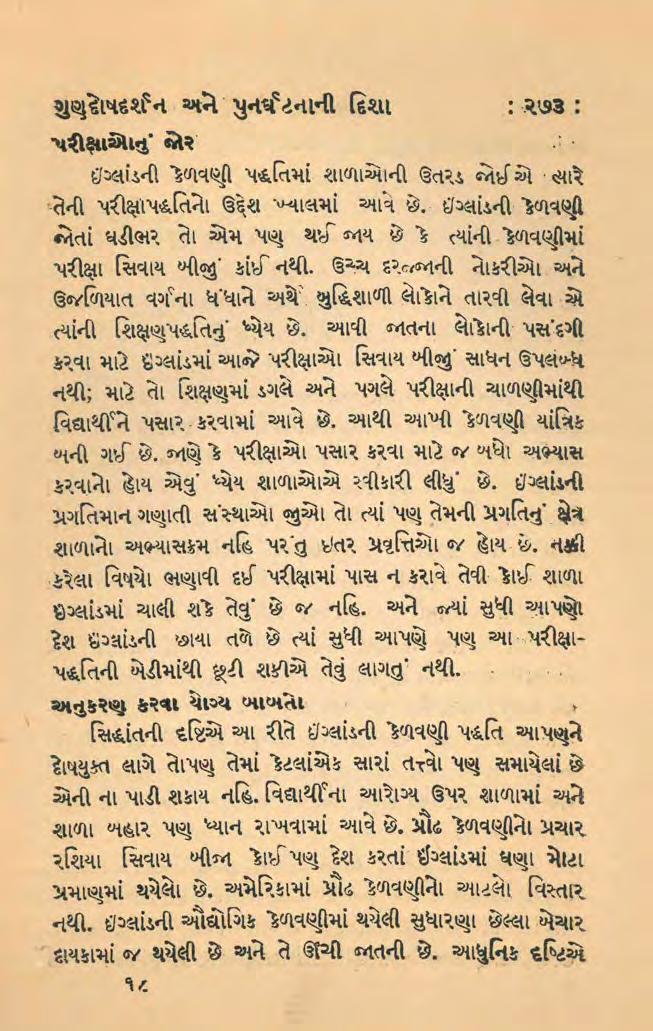 ગુણદોષદર્શન અને પુનર્ઘટનાની દિશા : ૨૭૩ :
પરીક્ષાઓનું જોર
ઇંગ્લાંડની કેળવણી પદ્ધતિમાં શાળાઓની ઉતરડ જોઈએ ત્યારે
તેની પરીક્ષાપદ્ધતિનો ઉદ્દેશ ખ્યાલમાં આવે છે. ઇંગ્લાંડની કેળવણી
જોતાં ઘડીભર તો એમ પણ થઈ જાય છે કે ત્યાંની કેળવણીમાં
પરીક્ષા સિવાય બીજું કાંઈ નથી. ઉચ્ચ દરજ્જાની નોકરીઓ અને
ઉજળિયાત વર્ગના ધંધાને અર્થે બુદ્ધિશાળી લોકોને તારવી લેવા એ
ત્યાંની શિક્ષણપદ્ધતિનું ધ્યેય છે. આવી જાતના લોકોની પસંદગી
કરવા માટે ઇંગ્લાંડમાં આજે પરીક્ષાઓ સિવાય બીજું સાધન ઉપલબ્ધ
નથી; માટે તો શિક્ષણમાં ડગલે અને પગલે પરીક્ષાની ચાળણીમાંથી
વિદ્યાર્થીને પસાર કરવામાં આવે છે. આથી આખી કેળવણી યાંત્રિક
બની ગઈ છે. જાણે કે પરીક્ષાઓ પસાર કરવા માટે જ બધો અભ્યાસ
કરવાનો હોય એવું ધ્યેય શાળાઓએ સ્વીકારી લીધું છે. ઇંગ્લાંડની
પ્રગતિમાન ગણાતી સંસ્થાઓ જુઓ તો ત્યાં પણ તેમની પ્રગતિનું ક્ષેત્ર
શાળાનો અભ્યાસક્રમ નહિ પરંતુ ઇતર પ્રવૃત્તિઓ જ હોય છે. નક્કી
કરેલા વિષયો ભણાવી દઈ પરીક્ષામાં પાસ ન કરાવે તેવી કોઈ શાળા
ઇંગ્લાંડમાં ચાલી શકે તેવું છે જ નહિ. અને જ્યાં સુધી આપણો
દેશ ઇંગ્લાંડની છાયા તળે છે ત્યાં સુધી આપણે પણ આ પરીક્ષા-
પદ્ધતિની બેડીમાંથી છૂટી શકીએ તેવું લાગતું નથી.
અનુકરણ કરવા યોગ્ય બાબતો
સિદ્ધાંતની દૃષ્ટિએ આ રીતે ઇંગ્લાંડની કેળવણી પદ્ધતિ આપણને
દોષયુક્ત લાગે તોપણ તેમાં કેટલાંએક સારાં તત્ત્વો પણ સમાયેલાં છે
એની ના પાડી શકાય નહિ. વિદ્યાર્થીના આરોગ્ય ઉપર શાળામાં અને
શાળા બહાર પણ ધ્યાન રાખવામાં આવે છે. પ્રૌઢ કેળવણીનો પ્રચાર
રશિયા સિવાય બીજા કોઈ પણ દેશ કરતાં ઇંગ્લાંડમાં ઘણા મોટા
પ્રમાણમાં થયેલો છે. અમેરિકામાં પ્રૌઢ કેળવણીનો આટલો વિસ્તાર
નથી. ઇંગ્લાંડની ઔદ્યોગિક કેળવણીમાં થયેલી સુધારણા છેલ્લા બેચાર
દાયકામાં જ થયેલી છે અને તે ઊંચી જાતની છે. આધુનિક દૃષ્ટિએ
૧૮